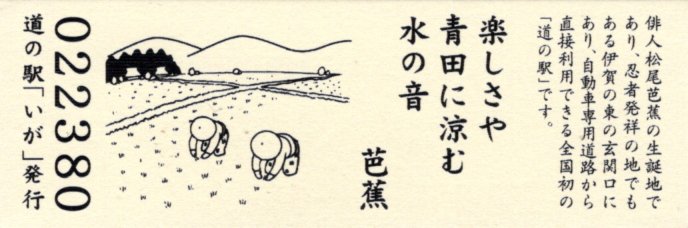 俳人松尾芭蕉の生誕地で
あり、忍者発祥の地でも
ある伊賀の東の玄関口に
あり、自動車専用道路から
直接利用できる全国初の
「道の駅」です。
楽しさや
青田に涼む
水の音
芭蕉
022380
道の駅「いが」発行